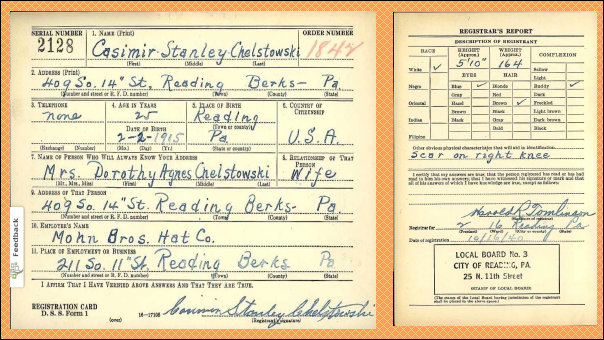 SERIAL NUMBER
1. NAME (Print)
ORDER NUMBER
2128
Casimir Stanley Chelstowski
1842
(First) (Middle) (Last)
2. ADDRESS (Print)
409 So. 14" St. Reading Berks- Pa
(Number and street or R. F. D. number) (Town) (County) (State)
3. TELEPHONE
4. AGE IN YEARS
5. PLACE OF BIRTH
6. COUNTRY OF CITIZENSHIP
none
25
Reading
(Town or county)
DATE OF BIRTH
2-2-1915
Pa.
U.S.A.
(Exchange) (Number)
(Mo.) (Day) (Yr.)
(State or country)
7. NAME OF PERSON WHO WILL ALWAYS KNOW YOUR ADDRESS
8. RELATIONSHIP OF THAT PERSON
Mrs. Dorothy Agnes Chelstowski
Wife
(Mr., Mrs., Miss) (First) (Middle) (Last)
9. ADDRESS OF THAT PERSON
409 So. 14" St. Reading Berks- Pa
(Number and street or R. F. D. number) (Town) (County) (State)
10. EMPLOYER'S NAME
Mohn Bros. Hat Co.
11. PLACE OF EMPLOYMENT OR BUSINESS
211 So. 11" St. Reading Berks Pa
(Number and street or R. F. D. number) (Town) (County) (State)
I AFFIRM THAT I HAVE VERIFIED ABOVE ANSWERS AND THAT THEY ARE TRUE.
REGISTRATION CARD
D. S. S. Form 1
(over)
16-17105
Casimir Stanley Chelstowski
(Registrant's signature)
Feedback
REGISTRAR'S REPORT
DESCRIPTION OF REGISTRANT
RACE
HEIGHT (Approx.)
WEIGHT (Approx.)
COMPLEXION
5'10"
164
Sallow
White
EYES
HAIR
Light
Negro
Blue
Blonde
Ruddy
Gray
Red
Dark
Oriental
Hazel
Brown
Freckled
Brown
Black
Light brown
Indian
Black
Gray
Dark brown
Bald
Black
Filipino
Other obvious physical characteristics that will aid in identification
Scar on right knee
I certify that my answers are true; that the person registered has read or has had read to him his own answers; that I have witnessed his signature or mark and that all of his answers of which I have knowledge are true, except as follows:
Harold R Tomlinson
Registrar for 2 16 Reading Pa
Date of registration 10/16/40
LOCAL BOARD No. 3
CITY OF READING, PA.
25 N. 11th Street
(STAMP OF LOCAL BOARD)
(The stamp of the Local Board having jurisdiction of the registrant shall be placed in the above space.)